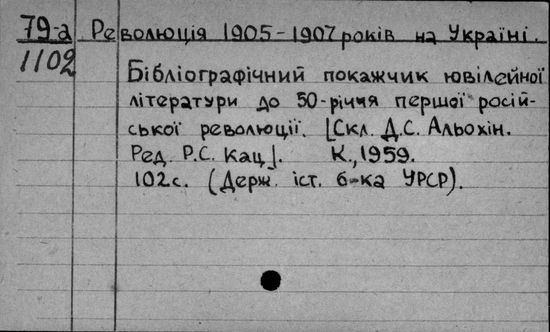 79-а Революція 1905-1907 років на Україні.
1102
Бібліографічний покажчик ювілейної
літератури до 50-річчя першої росій-
ської революції. [Скл. Д.С. Альохін.
Ред. Р.С. Кац]. К., 1959.
102с. (Держ. іст. б-ка УРСР).